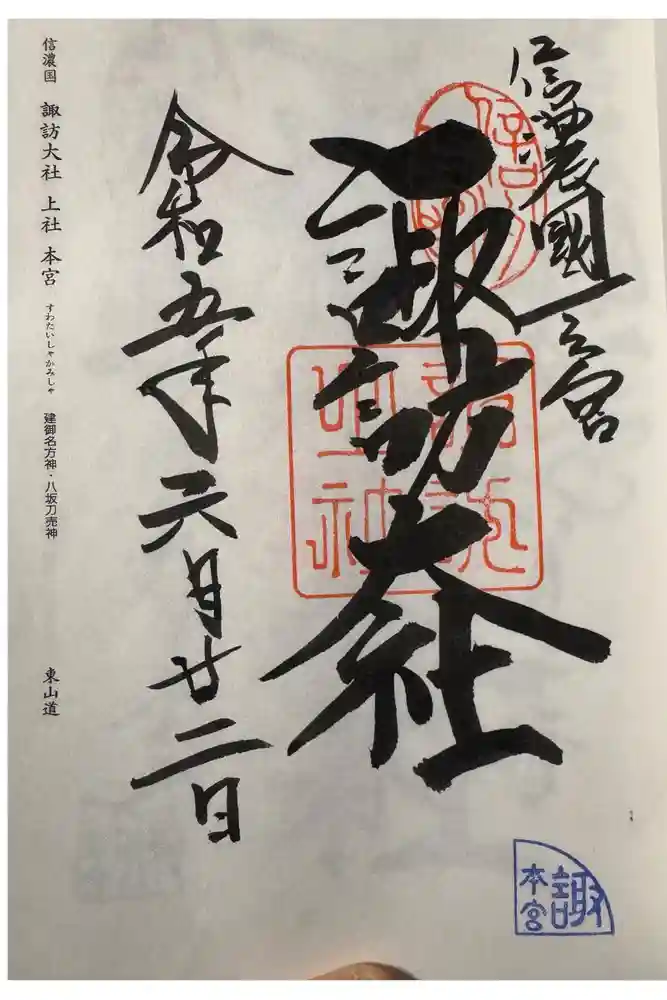 信濃國一之宮
諏訪大社
令和五年六月廿二日
信濃国 諏訪大社 上社 本宮 すわたいしゃかみしゃ 建御名方神・八坂刀売神 東山道
諏訪
本宮